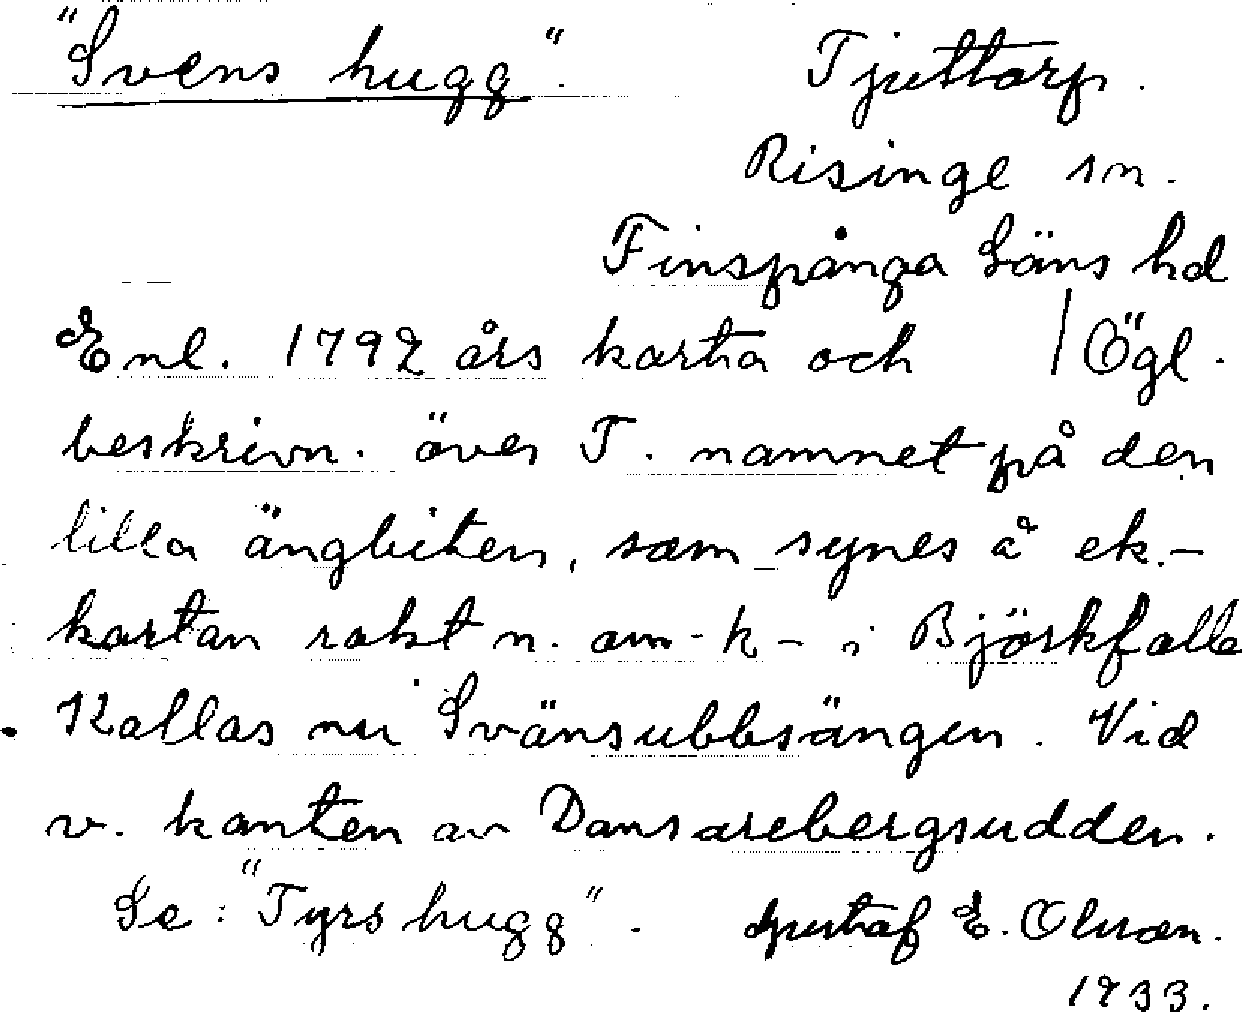 "Svens hugg". Tjuttorp.
Risinge sn.
Finspånga Läns hd
Enl. 1792 års karta och / Ögl.
beskrivn. över T. namnet på den
lilla ängbiten, som synes å ek.-
kartan rakt n. om -k- i Björkfalla
Kallas nu Svänsubbsängen. Vid
v. kanten av Dansarebergsudden.
Se: "Tyrs hugg". Gustaf E. Olsson.
1933.